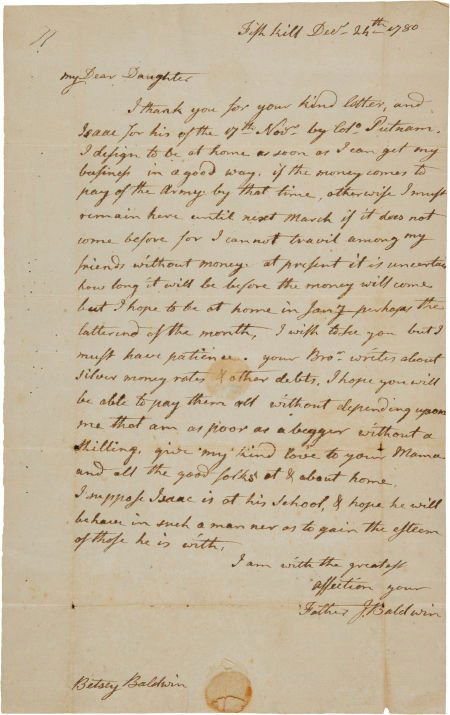 Fish kill Decr. 24th 1780
my Dear Daughter
I thank you for your kind letter, and
Isaac for his of the 17th Novr. by Colo. Putnam.
I design to be at home as soon as I can get my
business in a good way. if the money comes to
pay of the Army by that time, otherwise I must
remain here until next March if it does not
come before for I cannot travil among my
friends without money. at present it is uncertain
how long it will be before the money will come
but I hope to be at home in Jany. perhaps the
latter end of the month, I wish to see you but I
must have patience. your Bror. writes about
silver money rates & other debts, I hope you will
be able to pay them all without depending upon
me that am as poor as a begger without a
shilling. give my kind love to your Mama
and all the good folks at & about home.
I suppose Isaac is at his school, & hope he will
behave in such a manner as to gain the esteem
of those he is with,
I am with the greatest
affection your
Father J. Baldwin
Betsey Baldwin